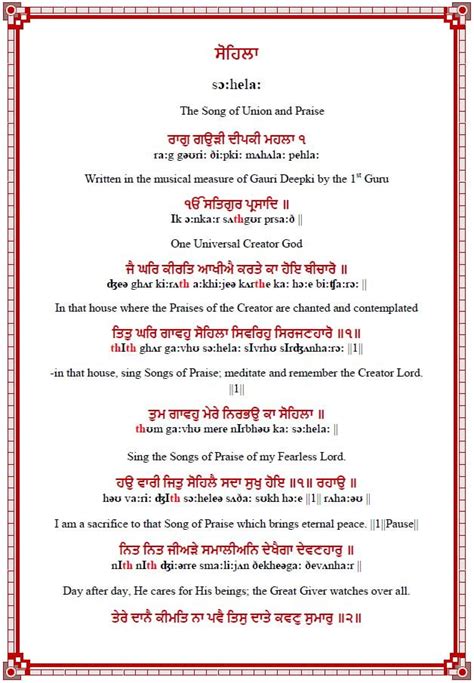 ਸੋਹਿਲਾ
sɔ:hela:
The Song of Union and Praise
ਰਾਗੁ ਗਉੜੀ ਦੀਪਕੀ ਮਹਲਾ ੧
ra:g gəʊri: ði:pki: mʌhʌla: pehla:
Written in the musical measure of Gauri Deepki by the 1st Guru
ੴ ਸਤਿਗੁਰ ਪ੍ਰਸਾਦਿ ॥
Ik ɔ:nka:r sʌthgʊr prsa:ð ||
One Universal Creator God
ਜੈ ਘਰਿ ਕੀਰਤਿ ਆਖੀਐ ਕਰਤੇ ਕਾ ਹੋਇ ਬੀਚਾਰੋ ॥
ʤeə ghʌr ki:rʌth a:khi:jeə kʌrthe ka: hɔ:e bi:ʧa:rə: ||
In that house where the Praises of the Creator are chanted and contemplated
ਤਿਤੁ ਘਰਿ ਗਾਵਹੁ ਸੋਹਿਲਾ ਸਿਵਰਿਹੁ ਸਿਰਜਣਹਾਰੋ ॥੧॥
thIth ghʌr ga:vhʊ sɔ:hela: sIvrhʊ sIrʤʌnha:rə: ||1||
-in that house, sing Songs of Praise; meditate and remember the Creator Lord.
||1||
ਤੁਮ ਗਾਵਹੁ ਮੇਰੇ ਨਿਰਭਉ ਕਾ ਸੋਹਿਲਾ ॥
thʊm ga:vhʊ mere nIrbhəʊ ka: sɔ:hela: ||
Sing the Songs of Praise of my Fearless Lord.
ਹਉ ਵਾਰੀ ਜਿਤੁ ਸੋਹਿਲੈ ਸਦਾ ਸੁਖੁ ਹੋਇ ॥੧॥ ਰਹਾਉ ॥
həʊ va:ri: ʤIth sɔ:heleə sʌða: sʊkh hɔ:e ||1|| rʌha:əʊ ||
I am a sacrifice to that Song of Praise which brings eternal peace. ||1||Pause||
ਨਿਤ ਨਿਤ ਜੀਅੜੇ ਸਮਾਲੀਅਨਿ ਦੇਖੈਗਾ ਦੇਵਣਹਾਰੁ ॥
nIth nIth ʤi:ərre sma:li:jʌn ðekheəga: ðevʌnha:r ||
Day after day, He cares for His beings; the Great Giver watches over all.
ਤੇਰੇ ਦਾਨੈ ਕੀਮਤਿ ਨਾ ਪਵੈ ਤਿਸੁ ਦਾਤੇ ਕਵਣੁ ਸੁਮਾਰੁ ॥੨॥